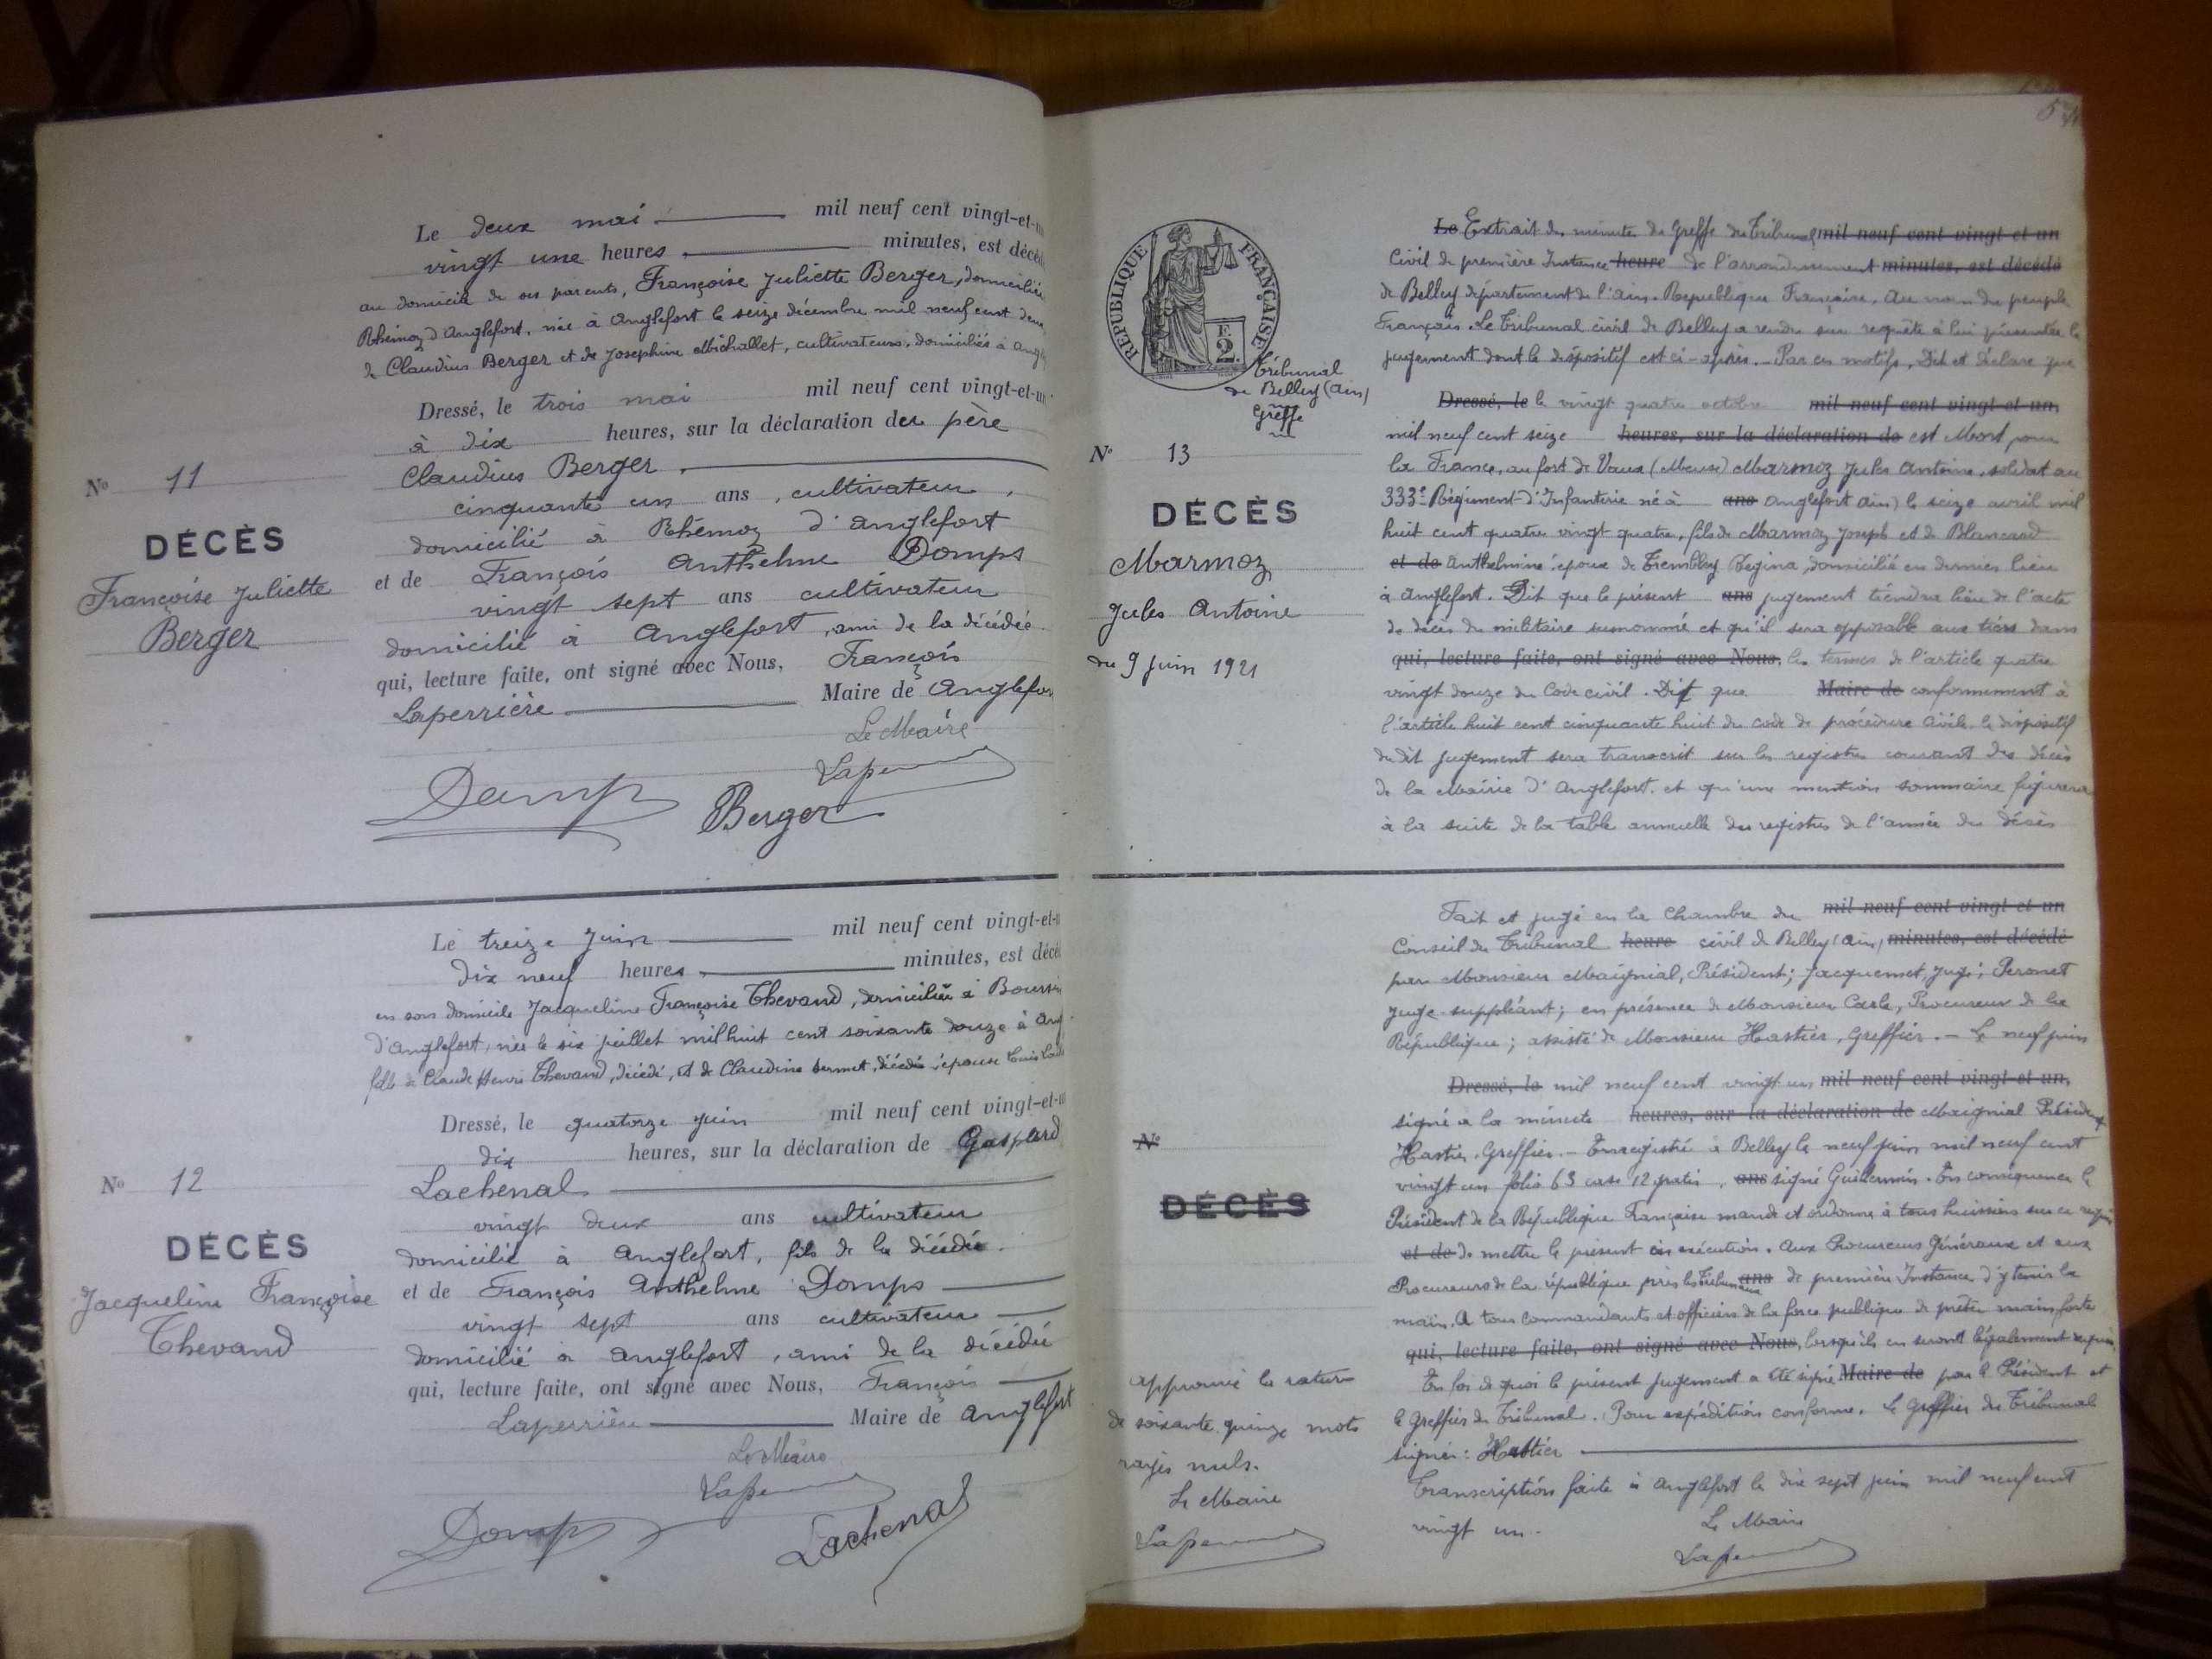 Le deux mai mil neuf cent vingt-et-u
vingt une heures minutes, est décéd
au domicile de ses parents, Françoise Juliette Berger, domiciliée
Rhémoz d'Anglefort, née à Anglefort le seize décembre mil neuf cent deux
de Claudius Berger et de Joséphine Michallet, cultivateurs, domiciliés à Angl
Dressé, le trois mai mil neuf cent vingt-et-un
à dix heures, sur la déclaration des père
Claudius Berger
cinquante un ans, cultivateur,
domicilié à Rhémoz d'Anglefort
et de François Anthelme Domps
vingt sept ans cultivateur
domicilié à Anglefort, ami de la décédée.
qui, lecture faite, ont signé avec Nous, François
Laperrière Maire de Anglefor
Le Maire
Domps
Berger
No 11
DÉCÈS
Françoise Juliette
Berger
Le treize Juin mil neuf cent vingt-et-u
dix neuf heures minutes, est décé
en son domicile Jacqueline Françoise Thevand, domiciliée à
d'Anglefort, née le six juillet mil huit cent soixante douze à Ang
fille de Claude Henri Thevand, décédé, et de Claudine décédée, épouse Louis
Dressé, le quatorze Juin mil neuf cent vingt-et-u
dix heures, sur la déclaration de Gaspard
Lachenal
vingt deux ans cultivateur
domicilié à Anglefort, fils de la décédée.
et de François Anthelme Domps
vingt sept ans cultivateur
domicilié à Anglefort, ami de la décédée
qui, lecture faite, ont signé avec Nous, François
Laperrière Maire de Anglefort
Le Maire
Domps
Lachenal
No 12
DÉCÈS
Jacqueline Françoise
Thevand
RÉPUBLIQUE FRANÇAISE
F.
2
Tribunal
de Belley (Ain)
Greffe
No 13
DÉCÈS
Marmoz
Jules Antoine
du 9 Juin 1921
Le Extrait des minutes du Greffe du Tribunal mil neuf cent vingt et un
Civil de première Instance heure de l'arrondissement minutes, est décédé
de Belley département de l'Ain. République Française. Au nom du peuple
Français. Le Tribunal civil de Belley a rendu sur requête à lui présentée le
jugement dont le dispositif est ci-après. - Par ces motifs, Dit et Déclare que
Dressé, le le vingt quatre octobre mil neuf cent vingt-et-un,
mil neuf cent seize heures, sur la déclaration de est Mort pour
la France, au fort de Vaux (Meuse) Marmoz Jules Antoine, soldat au
333e Régiment d'Infanterie né à ans Anglefort Ain) le seize avril mil
huit cent quatre vingt quatre, fils de Marmoz Joseph et de Blancard
et de Anthelmine, époux de Trembley Régina, domicilié en dernier lieu
à Anglefort. Dit que le présent ans jugement tiendra lieu de l'acte
de décès du militaire susnommé et qu'il sera opposable aux tiers dans
qui, lecture faite, ont signé avec Nous, les termes de l'article quatre
vingt douze du Code civil. Dit que Maire de conformément à
l'article huit cent cinquante huit du code de procédure Civile le dispositif
du dit jugement sera transcrit sur les registres courant des décès
de la Mairie d'Anglefort. et qu'une mention sommaire figurera
à la suite de la table annuelle des registres de l'année du décès
Fait et jugé en la Chambre du mil neuf cent vingt et un
Conseil du Tribunal heure civil de Belley (Ain) minutes, est décédé
par Monsieur Maignial, Président; Jacquemet, Juge; Peronet
Juge suppléant; en présence de Monsieur Procureur de la
République; assisté de Monsieur Hastier, Greffier. - Le neuf juin
Dressé, le mil neuf cent vingt un mil neuf cent vingt-et-un,
signé à la minute heures, sur la déclaration de Maignial Président
Hastier, Greffier. - Enregistré à Belley le neuf juin mil neuf cent
vingt un folio 63 case 12 gratis, ans signé Guillermin. En conséquence le
Président de la République Française mande et ordonne à tous huissiers sur ce requis
et de de mettre le présent en exécution. Aux Procureurs Généraux et aux
Procureurs de la république près les Tribunaux ans de première Instance d'y tenir la
main. A tous commandants et officiers de la force publique de prêter main forte
qui, lecture faite, ont signé avec Nous, lorsqu'ils en seront légalement requis.
En foi de quoi le présent Jugement a été signé Maire de par le Président et
le Greffier du Tribunal. Pour expédition conforme. Le Greffier du Tribunal
signé: Hastier
Transcription faite à Anglefort le dix sept juin mil neuf cent
vingt un.
Le Maire
No
DÉCÈS
approuvé la rature
de soixante quinze mots
rayés nuls.
Le Maire